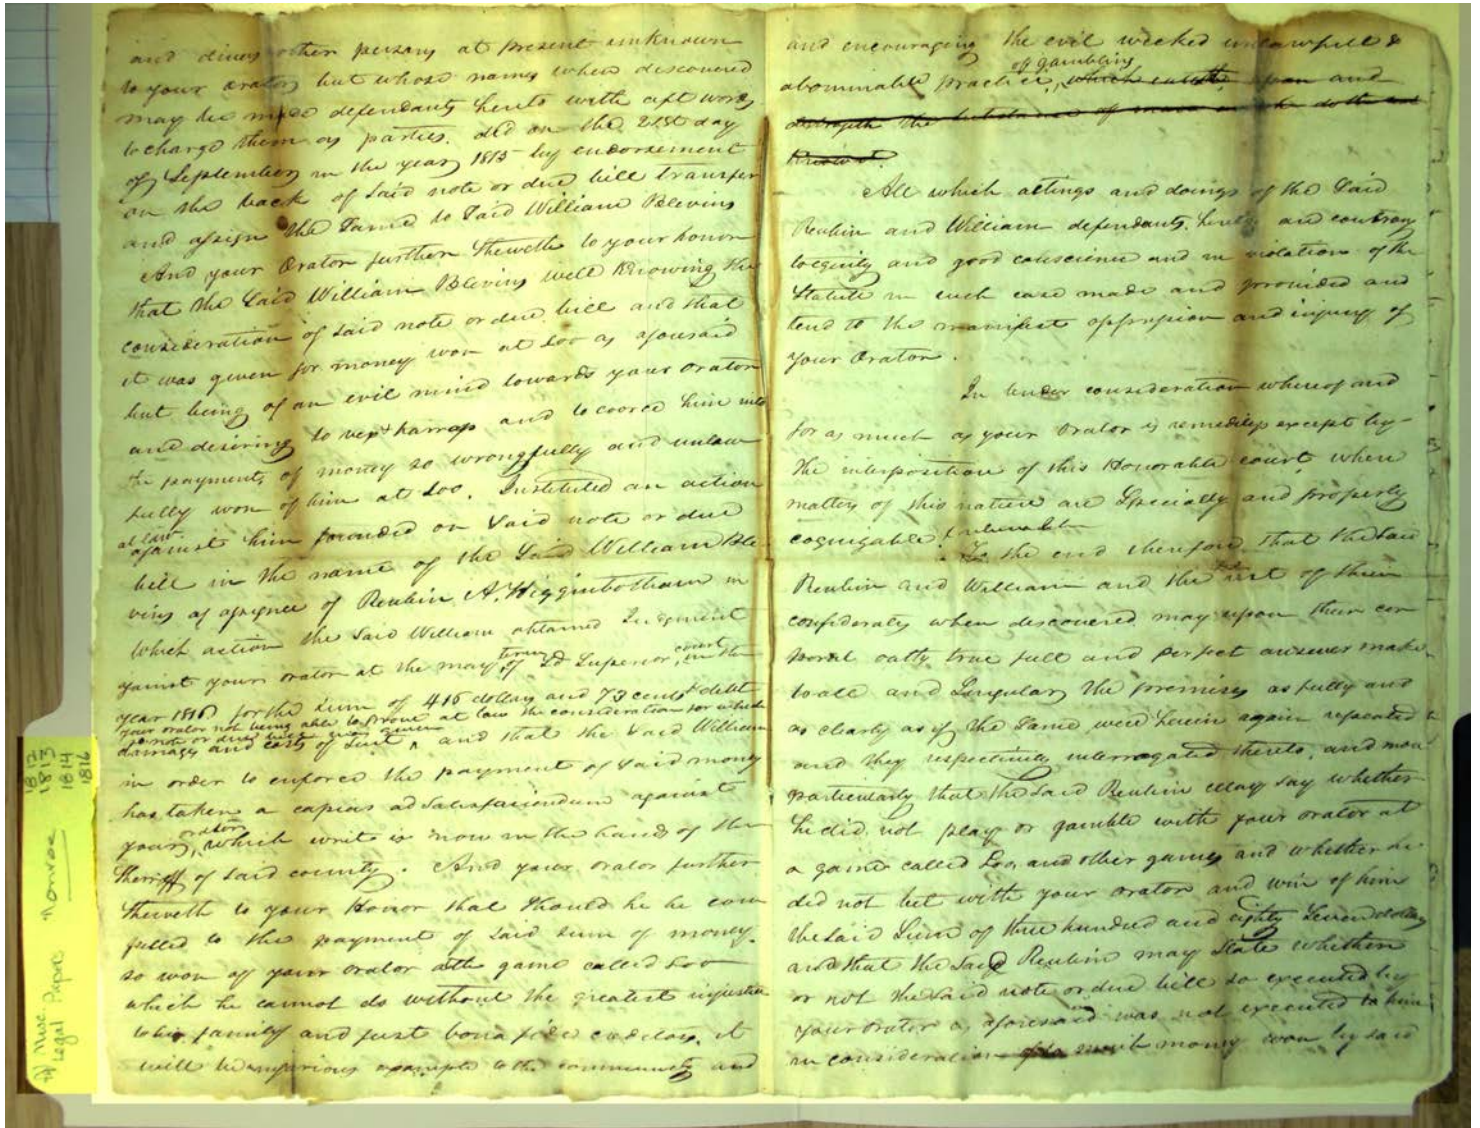 and divers other persons at present unknown
to your orator but whose names when discovered
may be made defendants hereto with apt words
to charge them as parties. did on the 21st day
of September in the year 1813 by endorsement
on the back of said note or due bill transfer
and assign the same to said William Blevins
And your Orator further sheweth to your honor
that the said William Blevins well knowing the
consideration of said note or due bill and that
it was given for money won at Loo as aforesaid
but being of an evil mind towards your orator
and desiring to vex & harrass and to coerce him into
the payment of money so wrongfully and unlaw
fully won of him at Loo. Instituted an action
at law
against him founded on said note or due
bill in the name of the said William Ble
vins as assignee of Reubin A. Higginbotham in
which action the said William obtained Judgment
against your orator at the may term of Sd Superior court in the
year 1816 for the sum of 416 dollars and 73 cents debt
your orator not being able to prove at law the consideration for which
sd note or due bill was given
damages and costs of suit ^ and that the said William
in order to enforce the payment of said money
has taken a capias ad satisfaciendum against
your orator, which writ is now in the hands of the
Sherriff of said county. And your orator further
sheweth to your Honor that should he be com
pelled to the payment of said sum of money
so won of your orator at the game called Loo
which he cannot do without the greatest injustice
to his family and just bona fide creditors, it
will be injurious example to the community and
and encouraging the evil wicked unlawfull &
of gambling
abominable practice, which and
the substance of man doth and

All which actings and doings of the said
Reubin and William defendants hereto and contrary
to equity and good conscience and in violation of the
Statute in such case made and provided and
tend to the manifest oppression and injury of
your Orator.
In tender consideration whereof and
for as much as your Orator is remediless except by
the interposition of this Honorable court where
matters of this nature are Specially and properly
cognizable & relievable
To the end therefore that the said
Reubin and William and the rest of their
confederates when discovered may upon their cor
poral oath true full and perfect answer make
to all and Singular the premises as fully and
as clearly as if the same were herein again repeated &
and they respectively interrogated thereto, and more
particularly that the said Reubin may say whether
he did not play or gamble with your orator at
a game called Loo, and other games and whether he
did not bet with your orator and win of him
the said Sum of three hundred and eighty Seven dollars
and that the said Reubin may State whether
or not the said note or due bill so executed by
your orator as aforesaid was not executed to him
in consideration of so much money won by said
1812
1813
1814
1816
Monroe
Misc. Papers
Legal